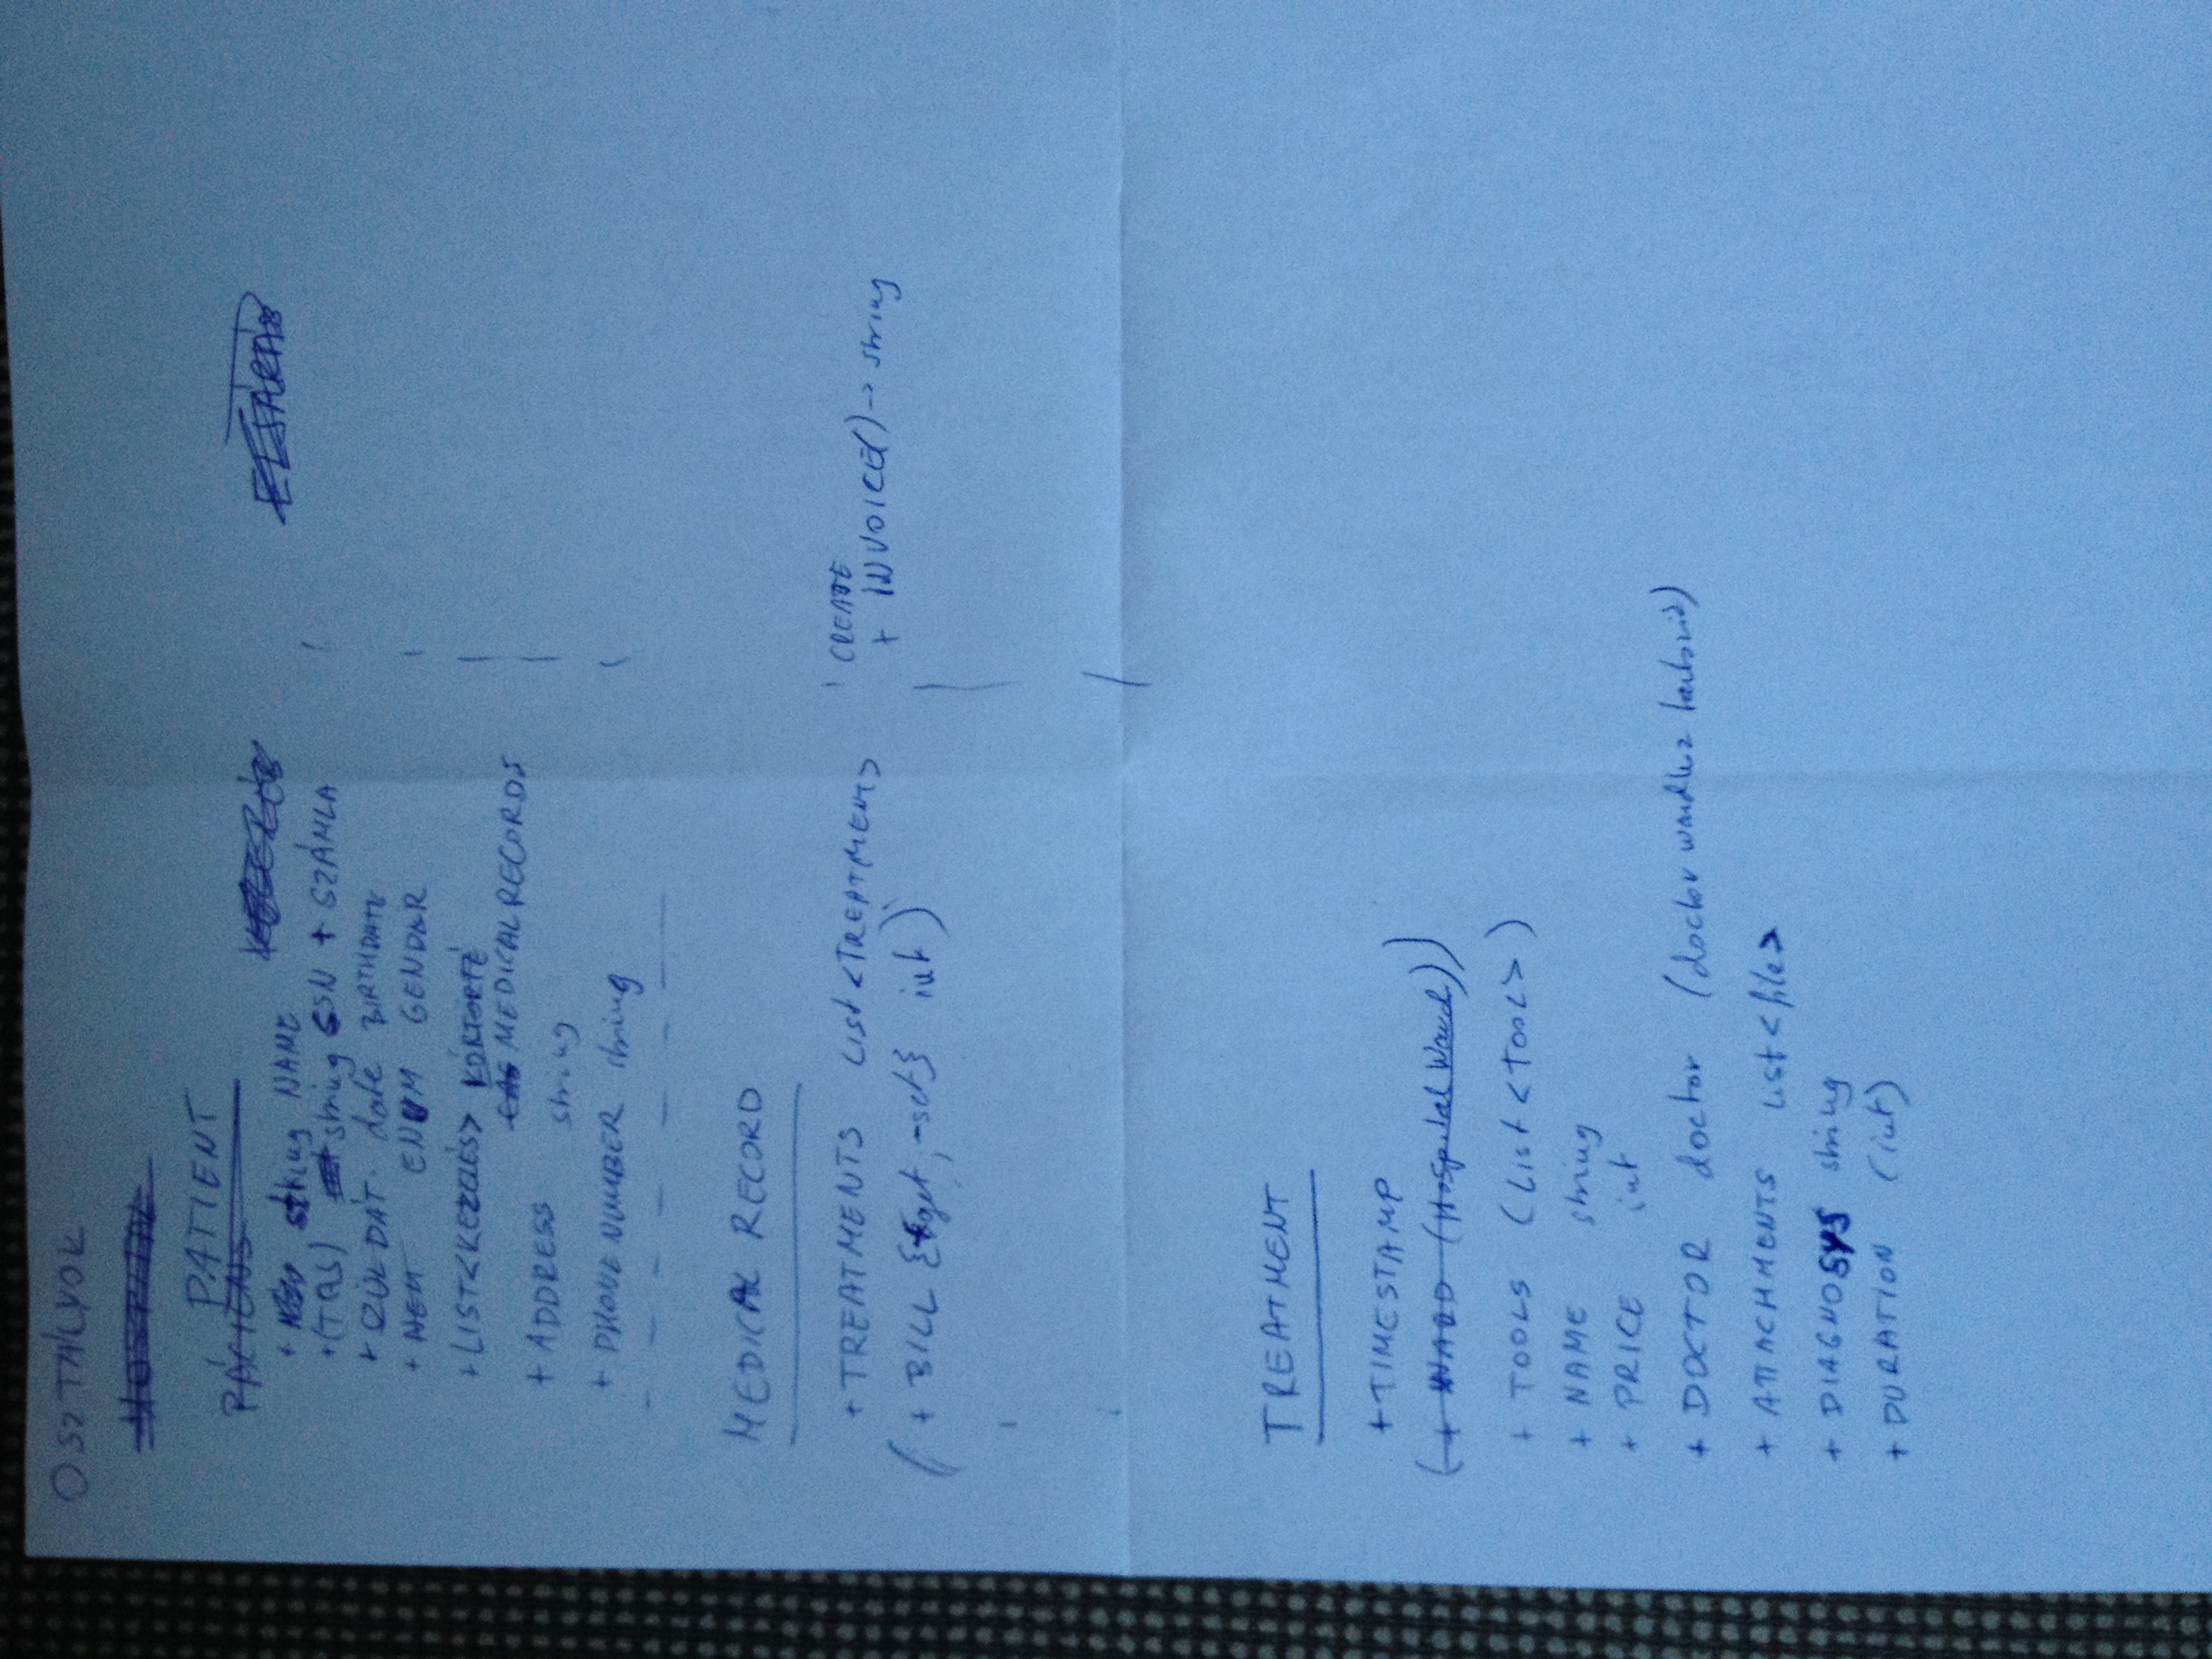 OSZTÁLYOK
HOSPITAL
PATIENT
PÁCIENS
KEZELÉS
ELJÁRÁS
+ string NAME
+ (TAJ) string SSN + SZÁMLA
+ SZÜLDÁT. date BIRTHDATE
+ NEM ENUM GENDER
+ LIST<KEZELÉS> KÓRTÖRTÉ
MEDICALRECORDS
+ ADDRESS string
+ PHONENUMBER string
MEDICAL RECORD
+ TREATMENTS List<TREATMENT>
CREATE
+ INVOICE() -> string
( + BILL {+get, -set} int )
TREATMENT
+ TIMESTAMP
( + WARD (Hospital Ward))
+ TOOLS (List<TOOL>)
+ NAME string
+ PRICE int
+ DOCTOR doctor (doctor wardhoz tartozik)
+ ATTACHMENTS List<file>
+ DIAGNOSYS string
+ DURATION (int)